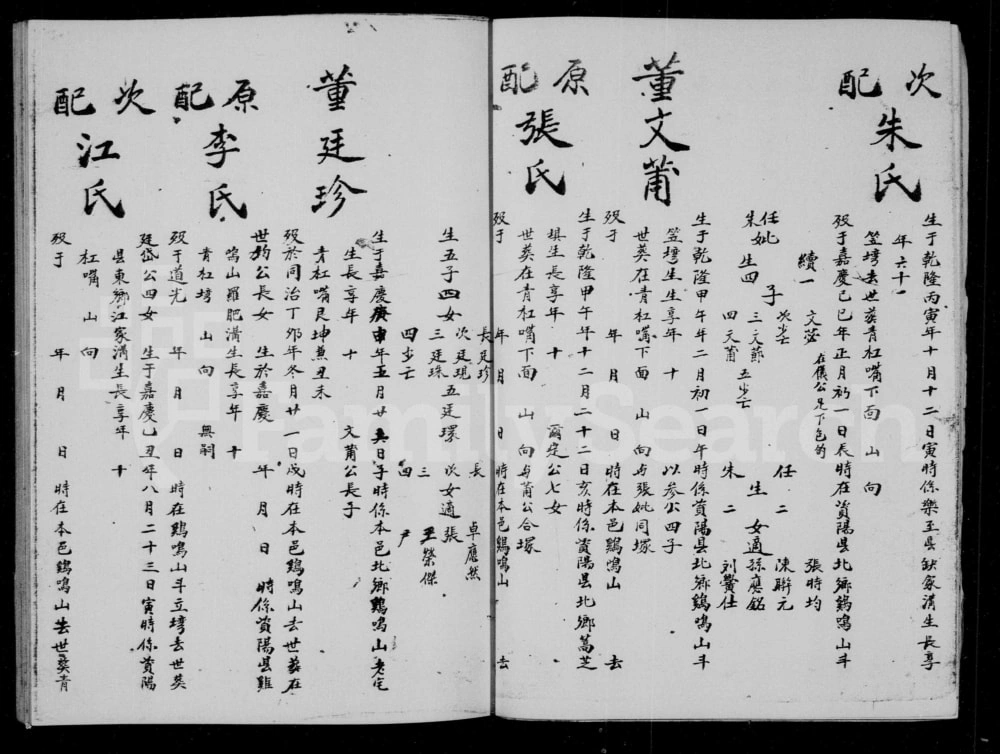 次配朱氏
生于乾隆丙寅年十月十二日寅時係樂至县缺家溝生長享
年六十一
笠塆去世葬青杠嘴下面山向
殁于嘉慶己巳年正月初一日辰時在資陽县北鄉鷄鳴山斗
續一 文宓 在儀公兄下包的 張時均
任妣 次少亡 任二 陳聨元
子 生四 三文蔚 五少亡 生女適孫應銘
朱 四文莆 朱二 刘黌仕
董文莆
生于乾隆甲午年二月初一日午時係資陽县北鄉鷄鳴山斗
笠塆生生享年十 以参公四子
世葬在青杠嘴下面 山 向与張妣同塚
殁于 年 月 日 時在本邑鷄鳴山 去
原配張氏
生于乾隆甲午年十二月二十二日亥時係資陽县北鄉萵芝
棋生長享年 十 爾定公七女
世葬在青杠嘴下面 山 向与莆公合塚
殁于 年 月 日 時在本邑鷄鳴山 去
長廷珍 長 卓應然
生五子四女 次廷現 五廷環 次女適張
三廷珠 三 王榮傑
四少亡 四 尸
董廷珍
生于嘉慶庚申年五月廿六日子時係本邑北鄉鷄鳴山老宅
生長享年 十 文莆公長子
青杠嘴艮坤兼丑未
殁於同治丁卯年冬月廿一日戌時在本邑鷄鳴山去世葬在
原配李氏
世鈞公長女 生於嘉慶 年 月 日 時係資陽县雞
鳴山羅肥溝生長享年 十
青杠塆 山 向 無嗣
殁于道光 年 月 日 時在鷄鳴山斗立塆去世葵
次配江氏
廷岱公四女 生于嘉慶乙丑年八月二十三日寅時係資陽
县東鄉江家溝生長享年 十
杠嘴 山 向
殁于 年 月 日 時在本邑鷄鳴山去世葵青
FamilySearch